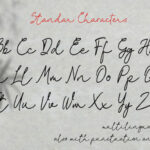 Standar Characters
Bb Cc Dd Ee Ff Gg H
Ll Mm Nn Oo Pp Q
Uu Vv Ww Xx Yy Z
multilingua
also with punctuation an